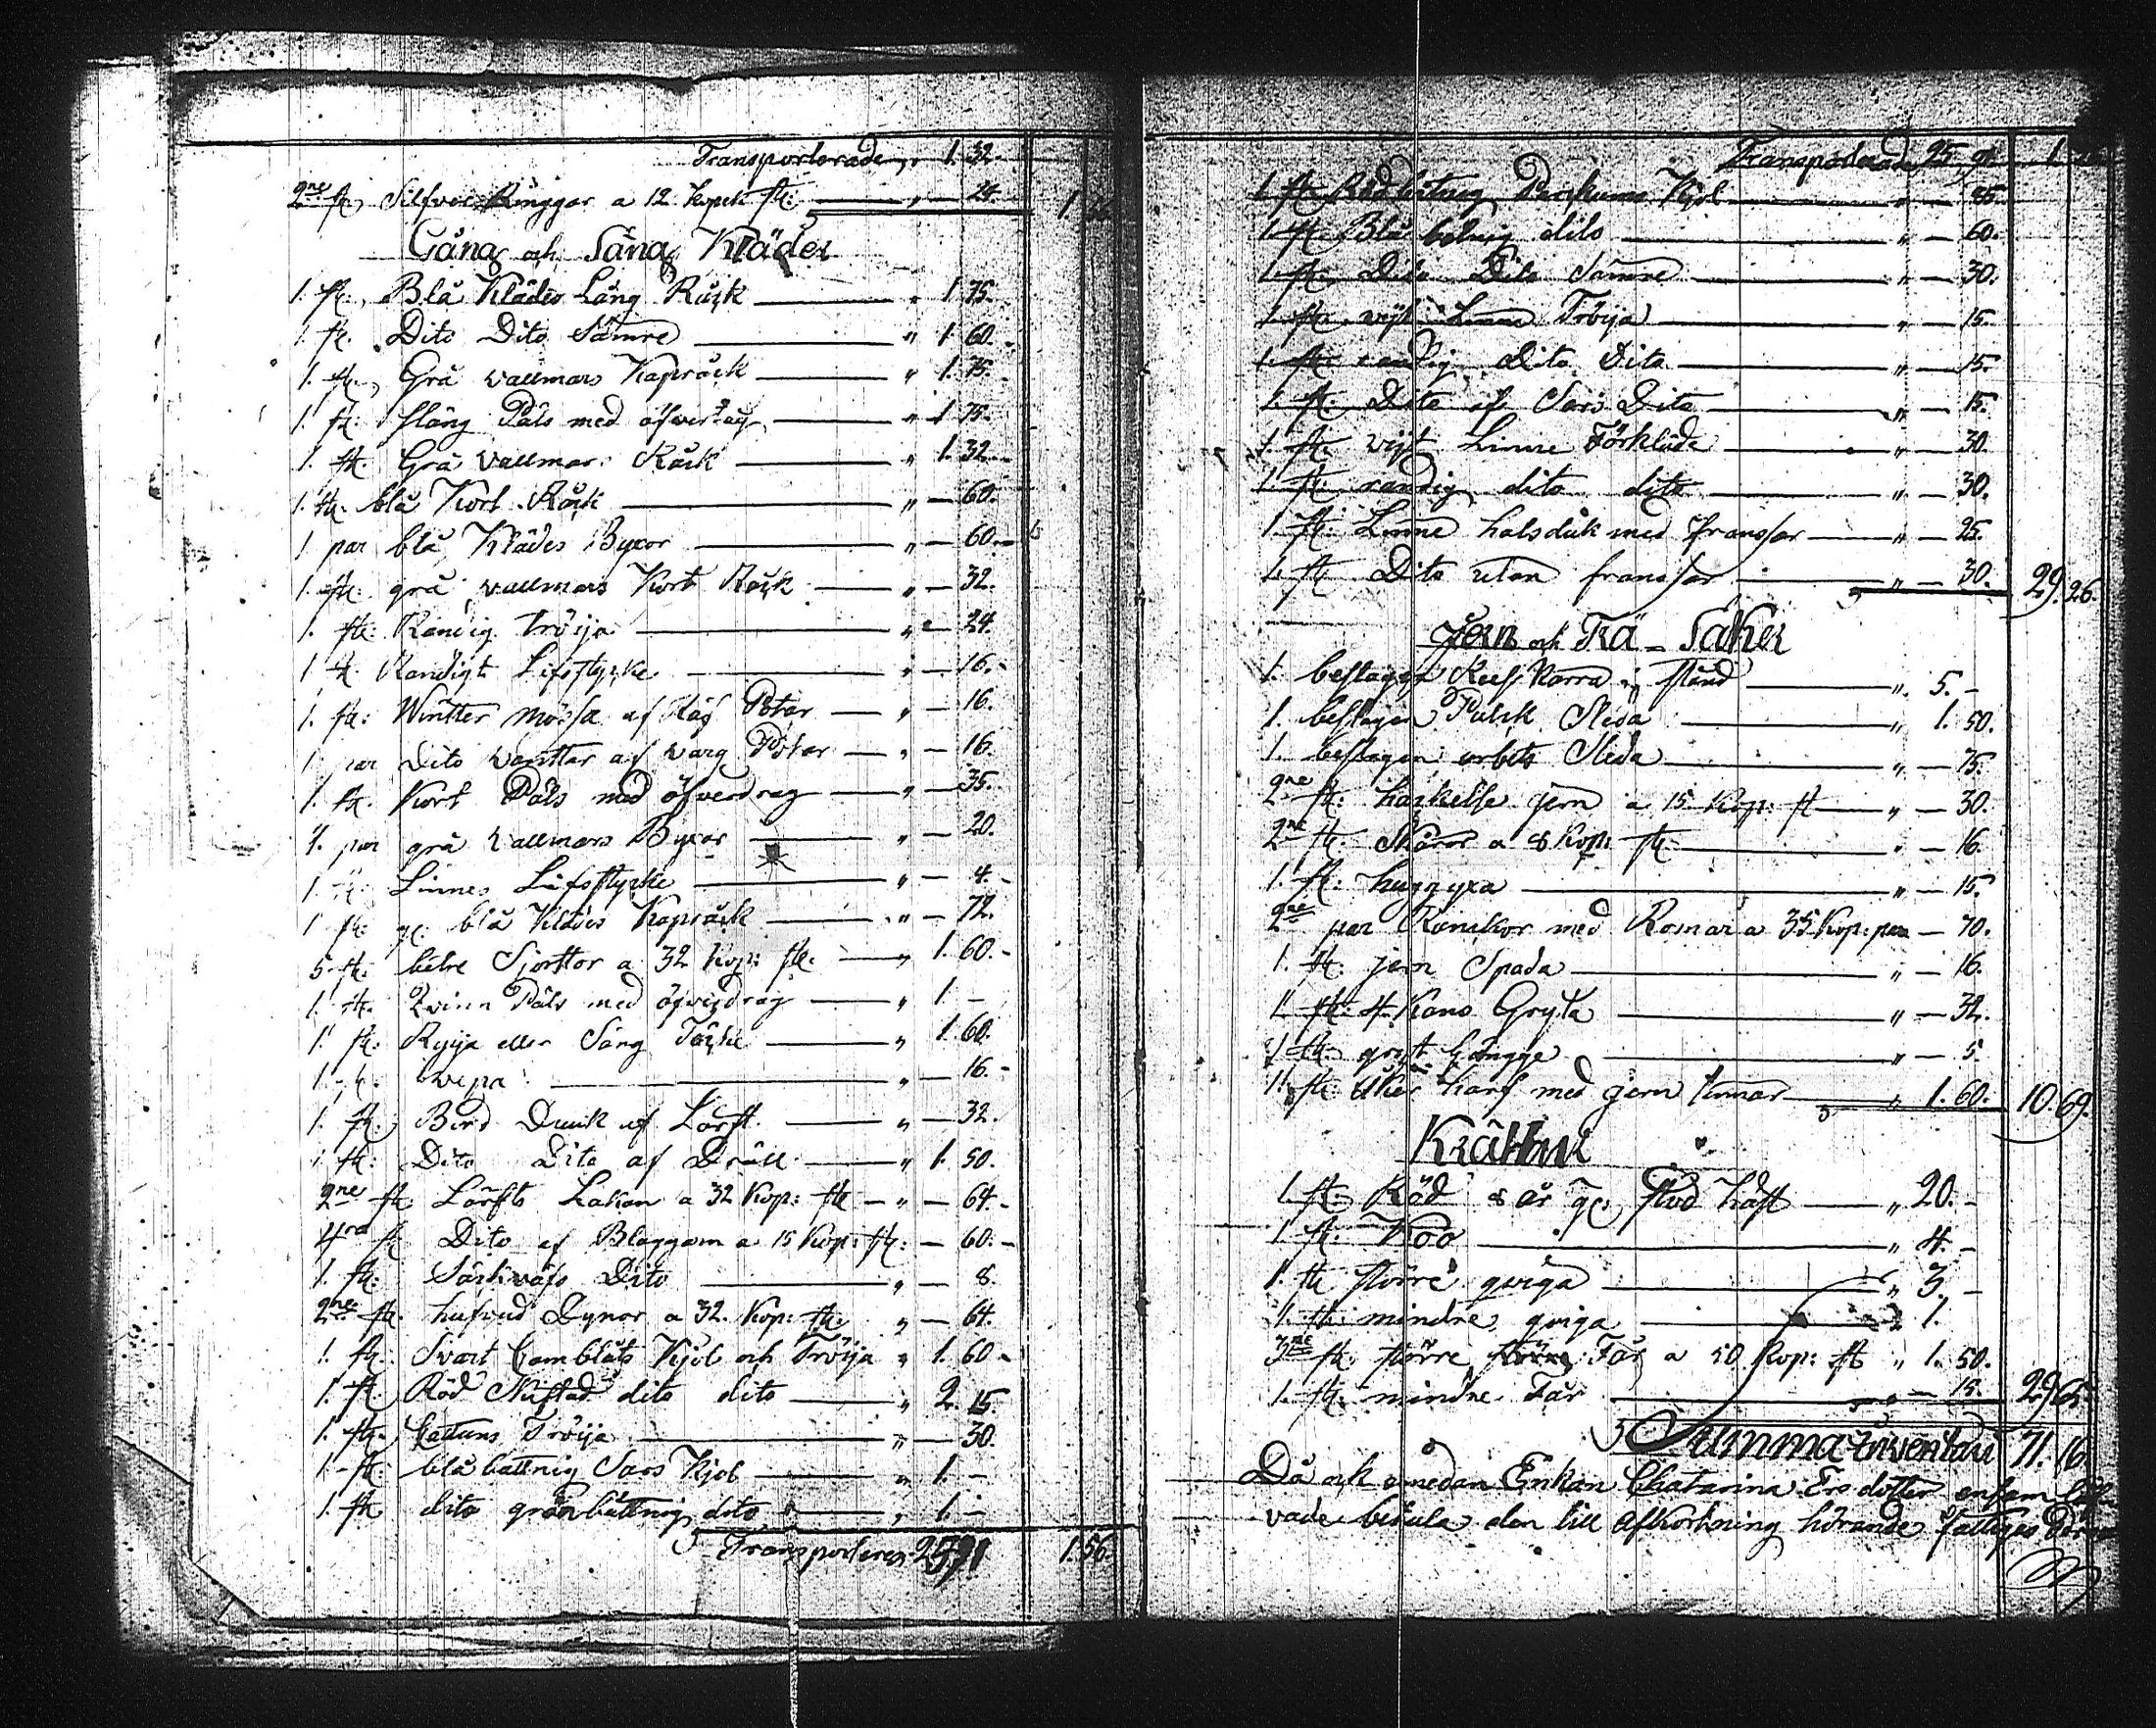 Transporterade „ 1. 32.
2ne st. Silfver Ringgar a 12 Kopek st: „ — 24. 1. 56
Gång och Säng Kläder
1. st. Blå Klädes Lång Råck „ 1. 75.
1. st. Dito Dito Sämre „ 1. 60.
1. st. Grå vallmars Kapråck „ 1. 75.
1. st. släng Päls med öfverdrag „ 1 75.
1. st. Grå vallmars Råck „ 1. 32.
1. st. blå Kort Råck „ — 60.
1 par blå Klädes Byxor „ — 60.
1. st. grå vallmars Kort Råck „ — 32.
1. st. Randig tröija „ — 24.
1 st. Randigt Lifstycke „ — 16.
1. st: Wintter mössa af Räf Potar „ — 16.
1 par Dito vanttar af varg Potar „ — 16.
1. st. Kort Päls med öfverdrag „ — 35.
1. par grå vallmars Byxor „ — 20.
1. st: Linnes Lifstycke „ — 4.
1 st: gl: blå Klädes Kapråck „ — 72.
5 st. bätre Sjorttor a 32 Kop: st. „ 1. 60.
1. st. Qvinn Päls med öfverdrag „ 1. —
1 st. Ryija eller Säng Täcke „ 1. 60.
1. st. vepa „ — 16.
1. st. Bord Duuk af Lärft „ — 32.
1 st: Dito Dito af Dräll „ 1. 50.
2ne st. Lärfts Lakan a 32 Kop: st. „ — 64.
4ra st Dito af Blaggarn a 15 Kop: st: — 60.
1. st: Säckväfs Dito „ — 8.
2ne st. hufvud Dynor a 32. Kop: st. „ — 64.
1. st. Svart Camblåts Kjol och Tröija „ 1. 60
1. st. Röd dito dito „ 2. 15.
1. st. Cattuns Tröija „ — 30.
1. st: blå battnig Sars Kjol „ 1. —
1. st dito grönbattnig dito „ 1. —
Transporteras 25 91 1. 56.
Transporterade 25. 91. 1.
1 st. Rödbatnig Kjol „ — 85.
1. st. Blå batnig dito „ — 60.
1. st. Dito Dito Sämre „ — 30.
1 st. vijt Linne Tröija „ — 15.
1 st. randig Dito Dito „ — 15.
1. st. Dito af Sars Dito „ — 15.
1. st. vijt Linne Förkläde „ — 30.
1 st. randig dito dito „ — 30.
1. st. Linne halsduk med fransar „ — 25.
1. st. Dito utan fransar „ — 30. 29. 26.
Jern och Trä - Saker
1. beslagen Kärra i stånd „ 5. —
1. beslagen Släda „ 1. 50.
1. beslagen arbets Släda „ — 75.
2ne st: jern a 15 Kop: st „ — 30.
2ne st: Skäror a 8 Kop: st: „ — 16.
1. st: huggyxa „ — 15.
2ne par med a 35 Kop: par — 70.
1. st. jern Spada „ — 16.
1 st: 4 Kans Gryta „ — 32.
1 st: gryt „ — 5.
1 st: åker harf med jern tinnar „ 1. 60. 10. 69.
Kräthur
1 st. 8 år gl. „ 20. —
1 st. Koo „ 4. —
1. st större qviga „ 3. —
1. st: mindre qviga „ 1.
3ne st: större Får a 50 Kop: st „ 1. 50.
1. st. mindre Får „ — 15. 29 65.
Summa Inventari 71. 16
Då och emedan Enkan Chatarina Ersdotter
vade betala den till afkortning hörande fattiges